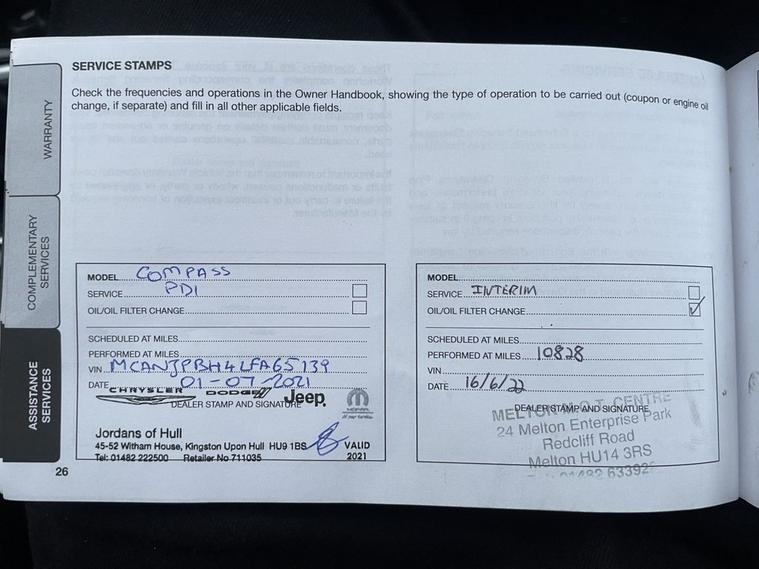 SERVICE STAMPS
Check the frequencies and operations in the Owner Handbook, showing the type of operation to be carried out (coupon or engine oil
change, if separate) and fill in all other applicable fields.
WARRANTY
COMPLEMENTARY
SERVICES
ASSISTANCE
SERVICES
MODEL COMPASS
SERVICE PDI
OIL/OIL FILTER CHANGE
SCHEDULED AT MILES
PERFORMED AT MILES
VIN MCANJPBH4LFA65139
DATE 01-07-2021
CHRYSLER DODGE Jeep
DEALER STAMP AND SIGNATURE
MOPAR
Jordans of Hull
45-52 Witham House, Kingston Upon Hull HU9 1BS
Tel: 01482 222500 Retailer No 711035
VALID
2021
MODEL
SERVICE INTERIM
OIL/OIL FILTER CHANGE
SCHEDULED AT MILES
PERFORMED AT MILES 10828
VIN
DATE 16/6/22
DEALER STAMP AND SIGNATURE
MELTON M.O.T. CENTRE
24 Melton Enterprise Park
Redcliff Road
Melton HU14 3RS
26